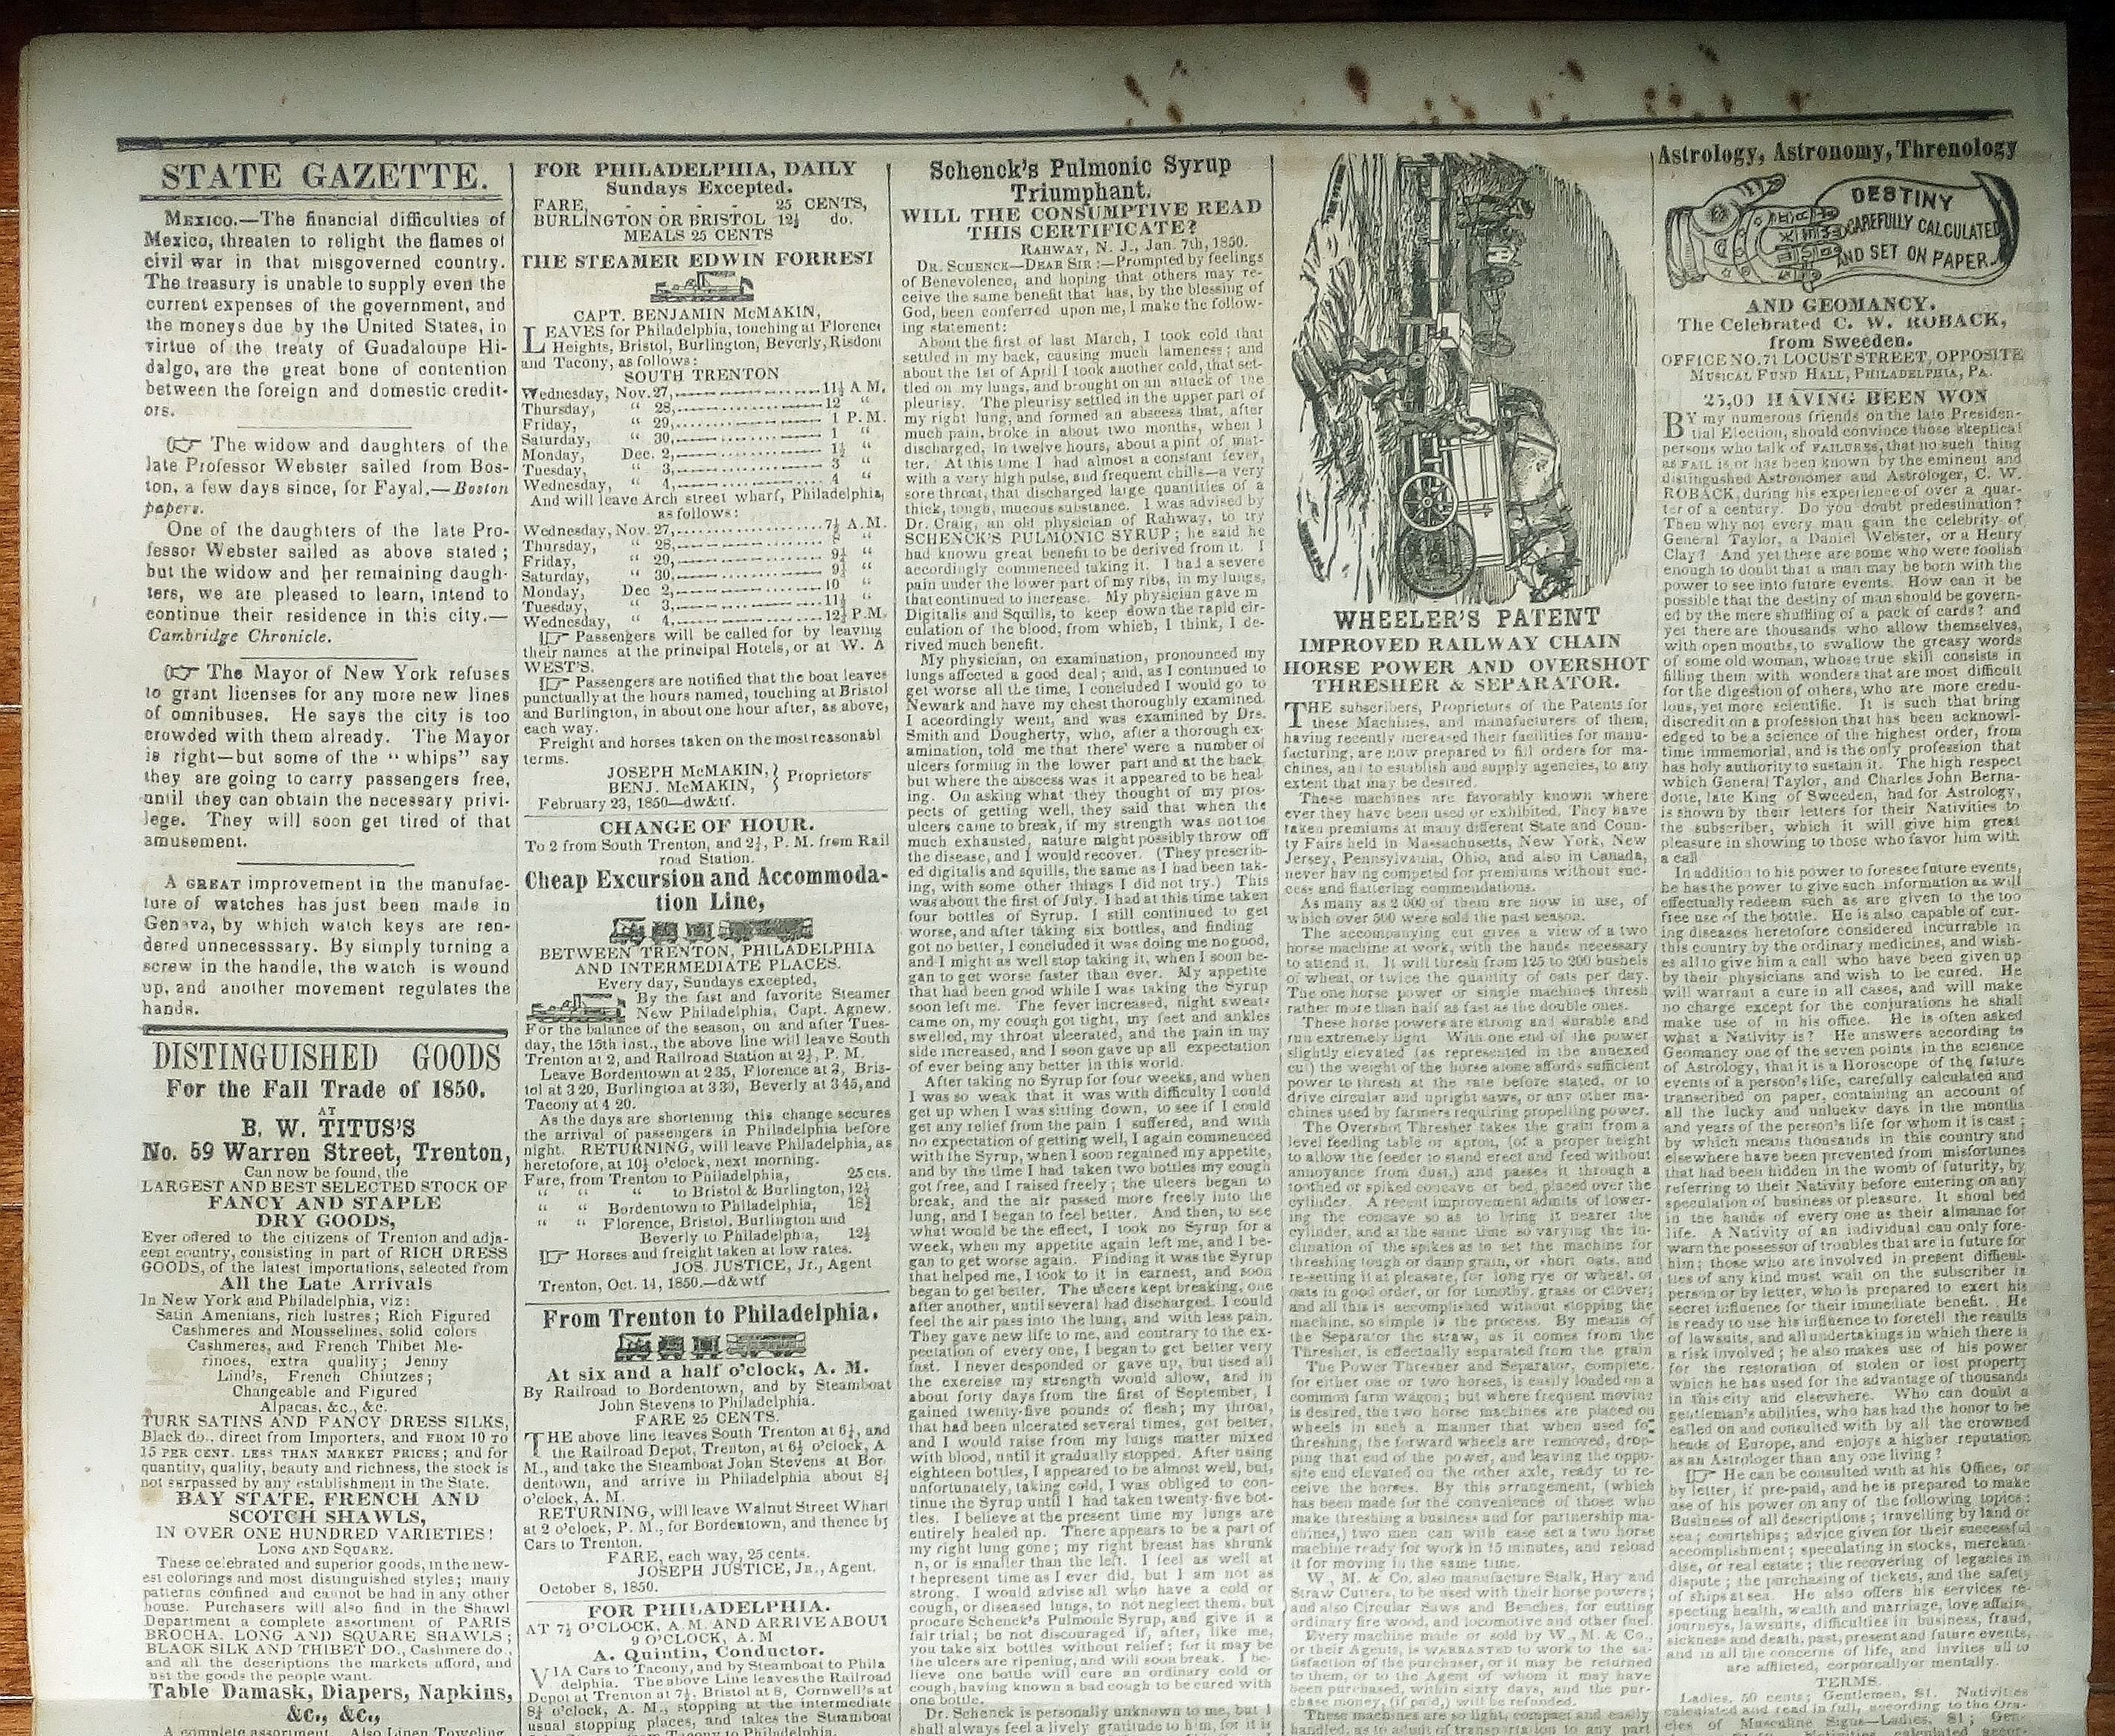 STATE GAZETTE.
MEXICO.—The financial difficulties of
Mexico, threaten to relight the flames of
civil war in that misgoverned country.
The treasury is unable to supply even the
current expenses of the government, and
the moneys due by the United States, in
virtue of the treaty of Guadaloupe Hi-
dalgo, are the great bone of contention
between the foreign and domestic credit-
ors.
☞ The widow and daughters of the
late Professor Webster sailed from Bos-
ton, a few days since, for Fayal.—Boston
papers.
One of the daughters of the late Pro-
fessor Webster sailed as above stated;
but the widow and her remaining daugh-
ters, we are pleased to learn, intend to
continue their residence in this city.—
Cambridge Chronicle.
☞ The Mayor of New York refuses
to grant licenses for any more new lines
of omnibuses. He says the city is too
crowded with them already. The Mayor
is right—but some of the "whips" say
they are going to carry passengers free,
until they can obtain the necessary privi-
lege. They will soon get tired of that
amusement.
A GREAT improvement in the manufac-
ture of watches has just been made in
Geneva, by which watch keys are ren-
dered unnecesssary. By simply turning a
screw in the handle, the watch is wound
up, and another movement regulates the
hands.
DISTINGUISHED GOODS
For the Fall Trade of 1850.
AT
B. W. TITUS'S
No. 59 Warren Street, Trenton,
Can now be found, the
LARGEST AND BEST SELECTED STOCK OF
FANCY AND STAPLE
DRY GOODS,
Ever offered to the citizens of Trenton and adja-
cent country, consisting in part of RICH DRESS
GOODS, of the latest importations, selected from
All the Late Arrivals
In New York and Philadelphia, viz:
Satin Amenians, rich lustres; Rich Figured
Cashmeres and Mousselines, solid colors
Cashmeres, and French Thibet Me-
rinoes, extra quality; Jenny
Lind's, French Chintzes;
Changeable and Figured
Alpacas, &c., &c.
TURK SATINS AND FANCY DRESS SILKS,
Black do., direct from Importers, and FROM 10 TO
15 PER CENT. LESS THAN MARKET PRICES; and for
quantity, quality, beauty and richness, the stock is
not surpassed by any establishment in the State.
BAY STATE, FRENCH AND
SCOTCH SHAWLS,
IN OVER ONE HUNDRED VARIETIES!
LONG AND SQUARE.
These celebrated and superior goods, in the new-
est colorings and most distinguished styles; many
patterns confined and cannot be had in any other
house. Purchasers will also find in the Shawl
Department a complete assortment of PARIS
BROCHA. LONG AND SQUARE SHAWLS;
BLACK SILK AND THIBET DO., Cashmere do.,
and all the descriptions the markets afford, and
just the goods the people want.
Table Damask, Diapers, Napkins,
&c., &c.,
A complete assortment. Also Linen Toweling,
FOR PHILADELPHIA, DAILY
Sundays Excepted.
FARE, - - - - 25 CENTS,
BURLINGTON OR BRISTOL 12½ do.
MEALS 25 CENTS
THE STEAMER EDWIN FORREST
CAPT. BENJAMIN McMAKIN,
LEAVES for Philadelphia, touching at Florence
Heights, Bristol, Burlington, Beverly, Risdons
and Tacony, as follows:
SOUTH TRENTON
Wednesday, Nov. 27, 11½ A M.
Thursday, " 28, 12 "
Friday, " 29, 1 P. M.
Saturday, " 30, 1 "
Monday, Dec. 2, 1½ "
Tuesday, " 3, 3 "
Wednesday, " 4, 4 "
And will leave Arch street wharf, Philadelphia,
as follows:
Wednesday, Nov. 27, 7½ A.M.
Thursday, " 28, 8 "
Friday, " 29, 9½ "
Saturday, " 30, 9½ "
Monday, Dec 2, 10 "
Tuesday, " 3, 11½ "
Wednesday, " 4, 12½ P.M.
☞ Passengers will be called for by leaving
their names at the principal Hotels, or at W. A
WEST'S.
☞ Passengers are notified that the boat leaves
punctually at the hours named, touching at Bristol
and Burlington, in about one hour after, as above,
each way.
Freight and horses taken on the most reasonabl
terms.
JOSEPH McMAKIN, } Proprietors
BENJ. McMAKIN,
February 23, 1850—dw&tf.
CHANGE OF HOUR.
To 2 from South Trenton, and 2½, P. M. from Rail
road Station.
Cheap Excursion and Accommoda-
tion Line,
BETWEEN TRENTON, PHILADELPHIA
AND INTERMEDIATE PLACES.
Every day, Sundays excepted,
By the fast and favorite Steamer
New Philadelphia, Capt. Agnew.
For the balance of the season, on and after Tues-
day, the 15th inst., the above line will leave South
Trenton at 2, and Railroad Station at 2½, P. M.
Leave Bordentown at 2 35, Florence at 3, Bris-
tol at 3 20, Burlington at 3 30, Beverly at 3 45, and
Tacony at 4 20.
As the days are shortening this change secures
the arrival of passengers in Philadelphia before
night. RETURNING, will leave Philadelphia, as
heretofore, at 10½ o'clock, next morning.
Fare, from Trenton to Philadelphia, 25 cts.
" " " to Bristol & Burlington, 12½
" " Bordentown to Philadelphia, 18¾
" " Florence, Bristol, Burlington and
Beverly to Philadelphia, 12½
☞ Horses and freight taken at low rates.
JOS. JUSTICE, Jr., Agent
Trenton, Oct. 14, 1850.—d&wtf
From Trenton to Philadelphia.
At six and a half o'clock, A. M.
By Railroad to Bordentown, and by Steamboat
John Stevens to Philadelphia.
FARE 25 CENTS.
THE above line leaves South Trenton at 6¼, and
the Railroad Depot, Trenton, at 6½ o'clock, A
M., and take the Steamboat John Stevens at Bor
dentown, and arrive in Philadelphia about 8½
o'clock, A. M.
RETURNING, will leave Walnut Street Wharf
at 2 o'clock, P. M., for Bordentown, and thence by
Cars to Trenton.
FARE, each way, 25 cents.
JOSEPH JUSTICE, JR., Agent.
October 8, 1850.
FOR PHILADELPHIA.
AT 7½ O'CLOCK, A.M. AND ARRIVE ABOUT
9 O'CLOCK, A. M
A. Quintin, Conductor.
VIA Cars to Tacony, and by Steamboat to Phila
delphia. The above Line leaves the Railroad
Depot at Trenton at 7½, Bristol at 8, Cornwell's at
8½ o'clock, A. M., stopping at the intermediate
usual stopping places, and takes the Steamboat
Schenck's Pulmonic Syrup
Triumphant.
WILL THE CONSUMPTIVE READ
THIS CERTIFICATE?
RAHWAY, N. J., Jan. 7th, 1850.
DR. SCHENCK—DEAR SIR:—Prompted by feelings
of Benevolence, and hoping that others may re-
ceive the same benefit that has, by the blessing of
God, been conferred upon me, I make the follow-
ing statement:
About the first of last March, I took cold that
settled in my back, causing much lameness; and
about the 1st of April I took another cold, that set-
tled on my lungs, and brought on an attack of the
pleurisy. The pleurisy settled in the upper part of
my right lung, and formed an abscess that, after
much pain, broke in about two months, when I
discharged, in twelve hours, about a pint of mat-
ter. At this time I had almost a constant fever,
with a very high pulse, and frequent chills—a very
sore throat, that discharged large quantities of a
thick, tough, mucous substance. I was advised by
Dr. Craig, an old physician of Rahway, to try
SCHENCK'S PULMONIC SYRUP; he said he
had known great benefit to be derived from it. I
accordingly commenced taking it. I had a severe
pain under the lower part of my ribs, in my lungs,
that continued to increase. My physician gave m
Digitalis and Squills, to keep down the rapid cir-
culation of the blood, from which, I think, I de-
rived much benefit.
My physician, on examination, pronounced my
lungs affected a good deal; and, as I continued to
get worse all the time, I concluded I would go to
Newark and have my chest thoroughly examined.
I accordingly went, and was examined by Drs.
Smith and Dougherty, who, after a thorough ex-
amination, told me that there were a number of
ulcers forming in the lower part and at the back
but where the abscess was it appeared to be heal
ing. On asking what they thought of my pros-
pects of getting well, they said that when the
ulcers came to break, if my strength was not too
much exhausted, nature might possibly throw off
the disease, and I would recover. (They prescrib-
ed digitalis and squills, the same as I had been tak-
ing, with some other things I did not try.) This
was about the first of July. I had at this time taken
four bottles of Syrup. I still continued to get
worse, and after taking six bottles, and finding
got no better, I concluded it was doing me no good,
and I might as well stop taking it, when I soon be-
gan to get worse faster than ever. My appetite
that had been good while I was taking the Syrup
soon left me. The fever increased, night sweats
came on, my cough got tight, my feet and ankles
swelled, my throat ulcerated, and the pain in my
side increased, and I soon gave up all expectation
of ever being any better in this world.
After taking no Syrup for four weeks, and when
I was so weak that it was with difficulty I could
get up when I was sitting down, to see if I could
get any relief from the pain I suffered, and with
no expectation of getting well, I again commenced
with the Syrup, when I soon regained my appetite,
and by the time I had taken two bottles my cough
got free, and I raised freely; the ulcers began to
break, and the air passed more freely into the
lung, and I began to feel better. And then, to see
what would be the effect, I took no Syrup for a
week, when my appetite again left me, and I be-
gan to get worse again. Finding it was the Syrup
that helped me, I took to it in earnest, and soon
began to get better. The ulcers kept breaking, one
after another, until several had discharged. I could
feel the air pass into the lung, and with less pain.
They gave new life to me, and contrary to the ex-
pectation of every one, I began to get better very
fast. I never desponded or gave up, but used all
the exercise my strength would allow, and in
about forty days from the first of September, I
gained twenty-five pounds of flesh; my throat,
that had been ulcerated several times, got better,
and I would raise from my lungs matter mixed
with blood, until it gradually stopped. After using
eighteen bottles, I appeared to be almost well, but,
unfortunately, taking cold, I was obliged to con-
tinue the Syrup until I had taken twenty-five bot-
tles. I believe at the present time my lungs are
entirely healed up. There appears to be a part of
my right lung gone; my right breast has shrunk
n, or is smaller than the left. I feel as well at
t hepresent time as I ever did, but I am not as
strong. I would advise all who have a cold or
cough, or diseased lungs, to not neglect them, but
procure Schenck's Pulmonic Syrup, and give it a
fair trial; be not discouraged if, after, like me,
you take six bottles without relief; for it may be
the ulcers are ripening, and will soon break. I be-
lieve one bottle will cure an ordinary cold or
cough, having known a bad cough to be cured with
one bottle.
Dr. Schenck is personally unknown to me, but I
shall always feel a lively gratitude to him, for it is
WHEELER'S PATENT
IMPROVED RAILWAY CHAIN
HORSE POWER AND OVERSHOT
THRESHER & SEPARATOR.
THE subscribers, Proprietors of the Patents for
these Machines, and manufacturers of them,
having recently increased their facilities for manu-
facturing, are now prepared to fill orders for ma-
chines, and to establish and supply agencies, to any
extent that may be desired.
These machines are favorably known where
ever they have been used or exhibited. They have
taken premiums at many different State and Coun-
ty Fairs held in Massachusetts, New York, New
Jersey, Pennsylvania, Ohio, and also in Canada,
never having competed for premiums without suc-
cess and flattering commendations.
As many as 2 000 of them are now in use, of
which over 500 were sold the past season.
The accompanying cut gives a view of a two
horse machine at work, with the hands necessary
to attend it. It will thresh from 125 to 200 bushels
of wheat, or twice the quantity of oats per day.
The one horse power or single machines thresh
rather more than half as fast as the double ones.
These horse powers are strong and durable and
run extremely light. With one end of the power
slightly elevated (as represented in the annexed
cut) the weight of the horse alone affords sufficient
power to thresh at the rate before stated, or to
drive circular and upright saws, or any other ma-
chines used by farmers requiring propelling power.
The Overshot Thresher takes the grain from a
level feeding table or apron, (of a proper height
to allow the feeder to stand erect and feed without
annoyance from dust,) and passes it through a
toothed or spiked concave or bed, placed over the
cylinder. A recent improvement admits of lower-
ing the concave so as to bring it nearer the
cylinder, and at the same time so varying the in-
clination of the spikes as to set the machine for
threshing tough or damp grain, or short oats, and
re-setting it at pleasure, for long rye or wheat, or
oats in good order, or for timothy, grass or clover;
and all this is accomplished without stopping the
machine, so simple is the process. By means of
the Separator the straw, as it comes from the
Thresher, is effectually separated from the grain
The Power Thresher and Separator, complete,
for either one or two horses, is easily loaded on a
common farm wagon; but where frequent moving
is desired, the two horse machines are placed on
wheels in such a manner that when used for
threshing, the forward wheels are removed, drop-
ping that end of the power, and leaving the oppo-
site end elevated on the other axle, ready to re-
ceive the horses. By this arrangement, (which
has been made for the convenience of those who
make threshing a business and for partnership ma-
chines,) two men can with ease set a two horse
machine ready for work in 15 minutes, and reload
it for moving in the same time.
W., M. & Co. also manufacture Stalk, Hay and
Straw Cutters, to be used with their horse powers;
and also Circular Saws and Benches, for cutting
ordinary fire wood, and locomotive and other fuel.
Every machine made or sold by W., M. & Co.,
or their Agents, is WARRANTED to work to the sa-
tisfaction of the purchaser, or it may be returned
to them, or to the Agent of whom it may have
been purchased, within sixty days, and the pur-
chase money, (if paid,) will be refunded.
These machines are so light, compact and easily
handled, as to admit of transportation to any part
Astrology, Astronomy, Threnology
DESTINY
CAREFULLY CALCULATED
AND SET ON PAPER.
AND GEOMANCY.
The Celebrated C. W. ROBACK,
from Sweeden.
OFFICE NO. 71 LOCUST STREET, OPPOSITE
MUSICAL FUND HALL, PHILADELPHIA, PA.
25,00 HAVING BEEN WON
BY my numerous friends on the late Presiden-
tial Election, should convince those skeptical
persons who talk of FAILURES, that no such thing
as FAIL is or has been known by the eminent and
distinguished Astronomer and Astrologer, C. W.
ROBACK, during his experience of over a quar-
ter of a century. Do you doubt predestination?
Then why not every man gain the celebrity of
General Taylor, a Daniel Webster, or a Henry
Clay? And yet there are some who were foolish
enough to doubt that a man may be born with the
power to see into future events. How can it be
possible that the destiny of man should be govern-
ed by the mere shuffling of a pack of cards? and
yet there are thousands who allow themselves,
with open mouths, to swallow the greasy words
of some old woman, whose true skill consists in
filling them with wonders that are most difficult
for the digestion of others, who are more credu-
lous, yet more scientific. It is such that bring
discredit on a profession that has been acknowl-
edged to be a science of the highest order, from
time immemorial, and is the only profession that
has holy authority to sustain it. The high respect
which General Taylor, and Charles John Berna-
dotte, late King of Sweeden, had for Astrology,
is shown by their letters for their Nativities to
the subscriber, which it will give him great
pleasure in showing to those who favor him with
a call
In addition to his power to foresee future events,
he has the power to give such information as will
effectually redeem such as are given to the too
free use of the bottle. He is also capable of cur-
ing diseases heretofore considered incurrable in
this country by the ordinary medicines, and wish-
es all to give him a call who have been given up
by their physicians and wish to be cured. He
will warrant a cure in all cases, and will make
no charge except for the conjurations he shall
make use of in his office. He is often asked
what a Nativity is? He answers according to
Geomancy one of the seven points in the science
of Astrology, that it is a Horoscope of the future
events of a person's life, carefully calculated and
transcribed on paper, containing an account of
all the lucky and unlucky days in the months
and years of the person's life for whom it is cast;
by which means thousands in this country and
elsewhere have been prevented from misfortunes
that had been hidden in the womb of futurity, by
referring to their Nativity before entering on any
speculation of business or pleasure. It shoul bed
in the hands of every one as their almanac for
life. A Nativity of an individual can only fore-
warn the possessor of troubles that are in future for
him; those who are involved in present difficul-
ties of any kind must wait on the subscriber in
person or by letter, who is prepared to exert his
secret influence for their immediate benefit. He
is ready to use his influence to foretell the results
of lawsuits, and all undertakings in which there is
a risk involved; he also makes use of his power
for the restoration of stolen or lost property
which he has used for the advantage of thousands
in this city and elsewhere. Who can doubt a
gentleman's abilities, who has had the honor to be
called on and consulted with by all the crowned
heads of Europe, and enjoys a higher reputation
as an Astrologer than any one living?
☞ He can be consulted with at his Office, or
by letter, if pre-paid, and he is prepared to make
use of his power on any of the following topics:
Business of all descriptions; travelling by land or
sea; courtships; advice given for their successful
accomplishment; speculating in stocks, merchan-
dise, or real estate; the recovering of legacies in
dispute; the purchasing of tickets, and the safety
of ships at sea. He also offers his services re-
specting health, wealth and marriage, love affairs,
journeys, lawsuits, difficulties in business, fraud,
sickness and death, past, present and future events,
and in all the concerns of life, and invites all to
are afflicted, corporeally or mentally.
TERMS.
Ladies, 50 cents; Gentlemen, $1. Nativities
calculated and read in full, according to the Ora-
cles of Masculine Signs—Ladies, $1; Gen-